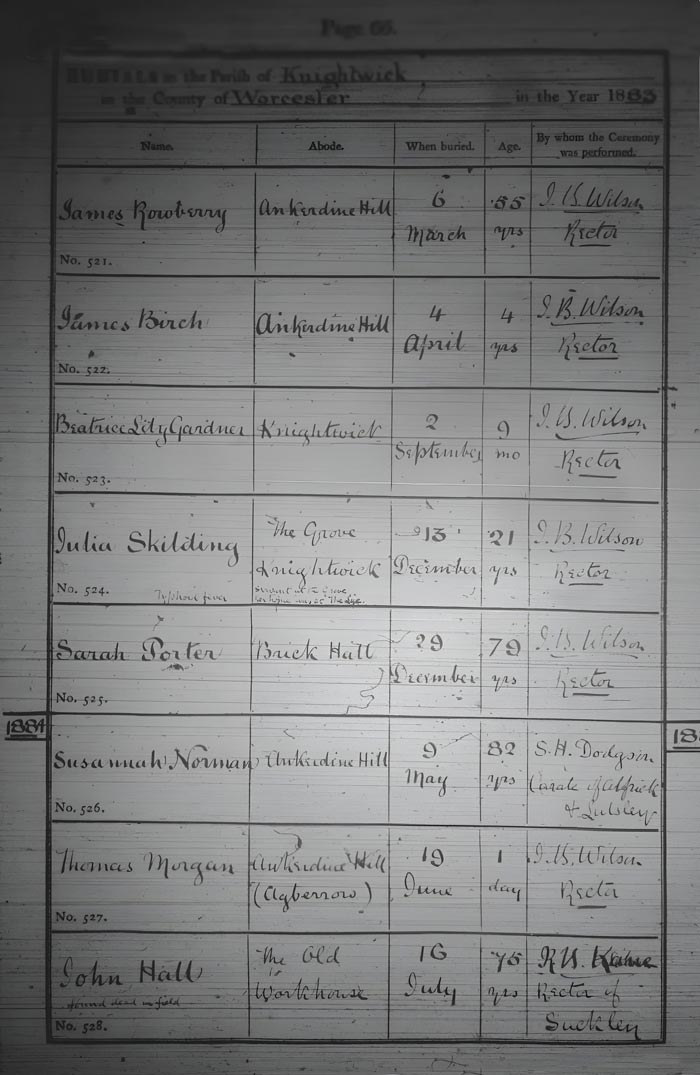 Page 66.
BURIALS in the Parish of Knightwick
in the County of Worcester in the Year 1883
Name. Abode. When buried. Age. By whom the Ceremony was performed.
James Rowberry Ankerdine Hill 6 March 55 yrs J. B. Wilson Rector
No. 521.
James Birch Ankerdine Hill 4 April 4 yrs J. B. Wilson Rector
No. 522.
Beatrice Lily Gardner Knightwick 2 September 9 mo J. B. Wilson Rector
No. 523.
Julia Skilding The Grove Knightwick 13 December 21 yrs J. B. Wilson Rector
servant at the Grove
No. 524. Typhoid fever
Sarah Porter Brick Hall 29 December 79 yrs J. B. Wilson Rector
No. 525.
1884 18
Susannah Norman Ankerdine Hill 9 May 82 yrs S. H. Dodgson Curate of Alfrick & Lulsley
No. 526.
Thomas Morgan Ankerdine Hill (Agberrow) 19 June 1 day J. B. Wilson Rector
No. 527.
John Hall The Old Workhouse 16 July 75 yrs R. B. Rector of Suckley
found dead in field
No. 528.